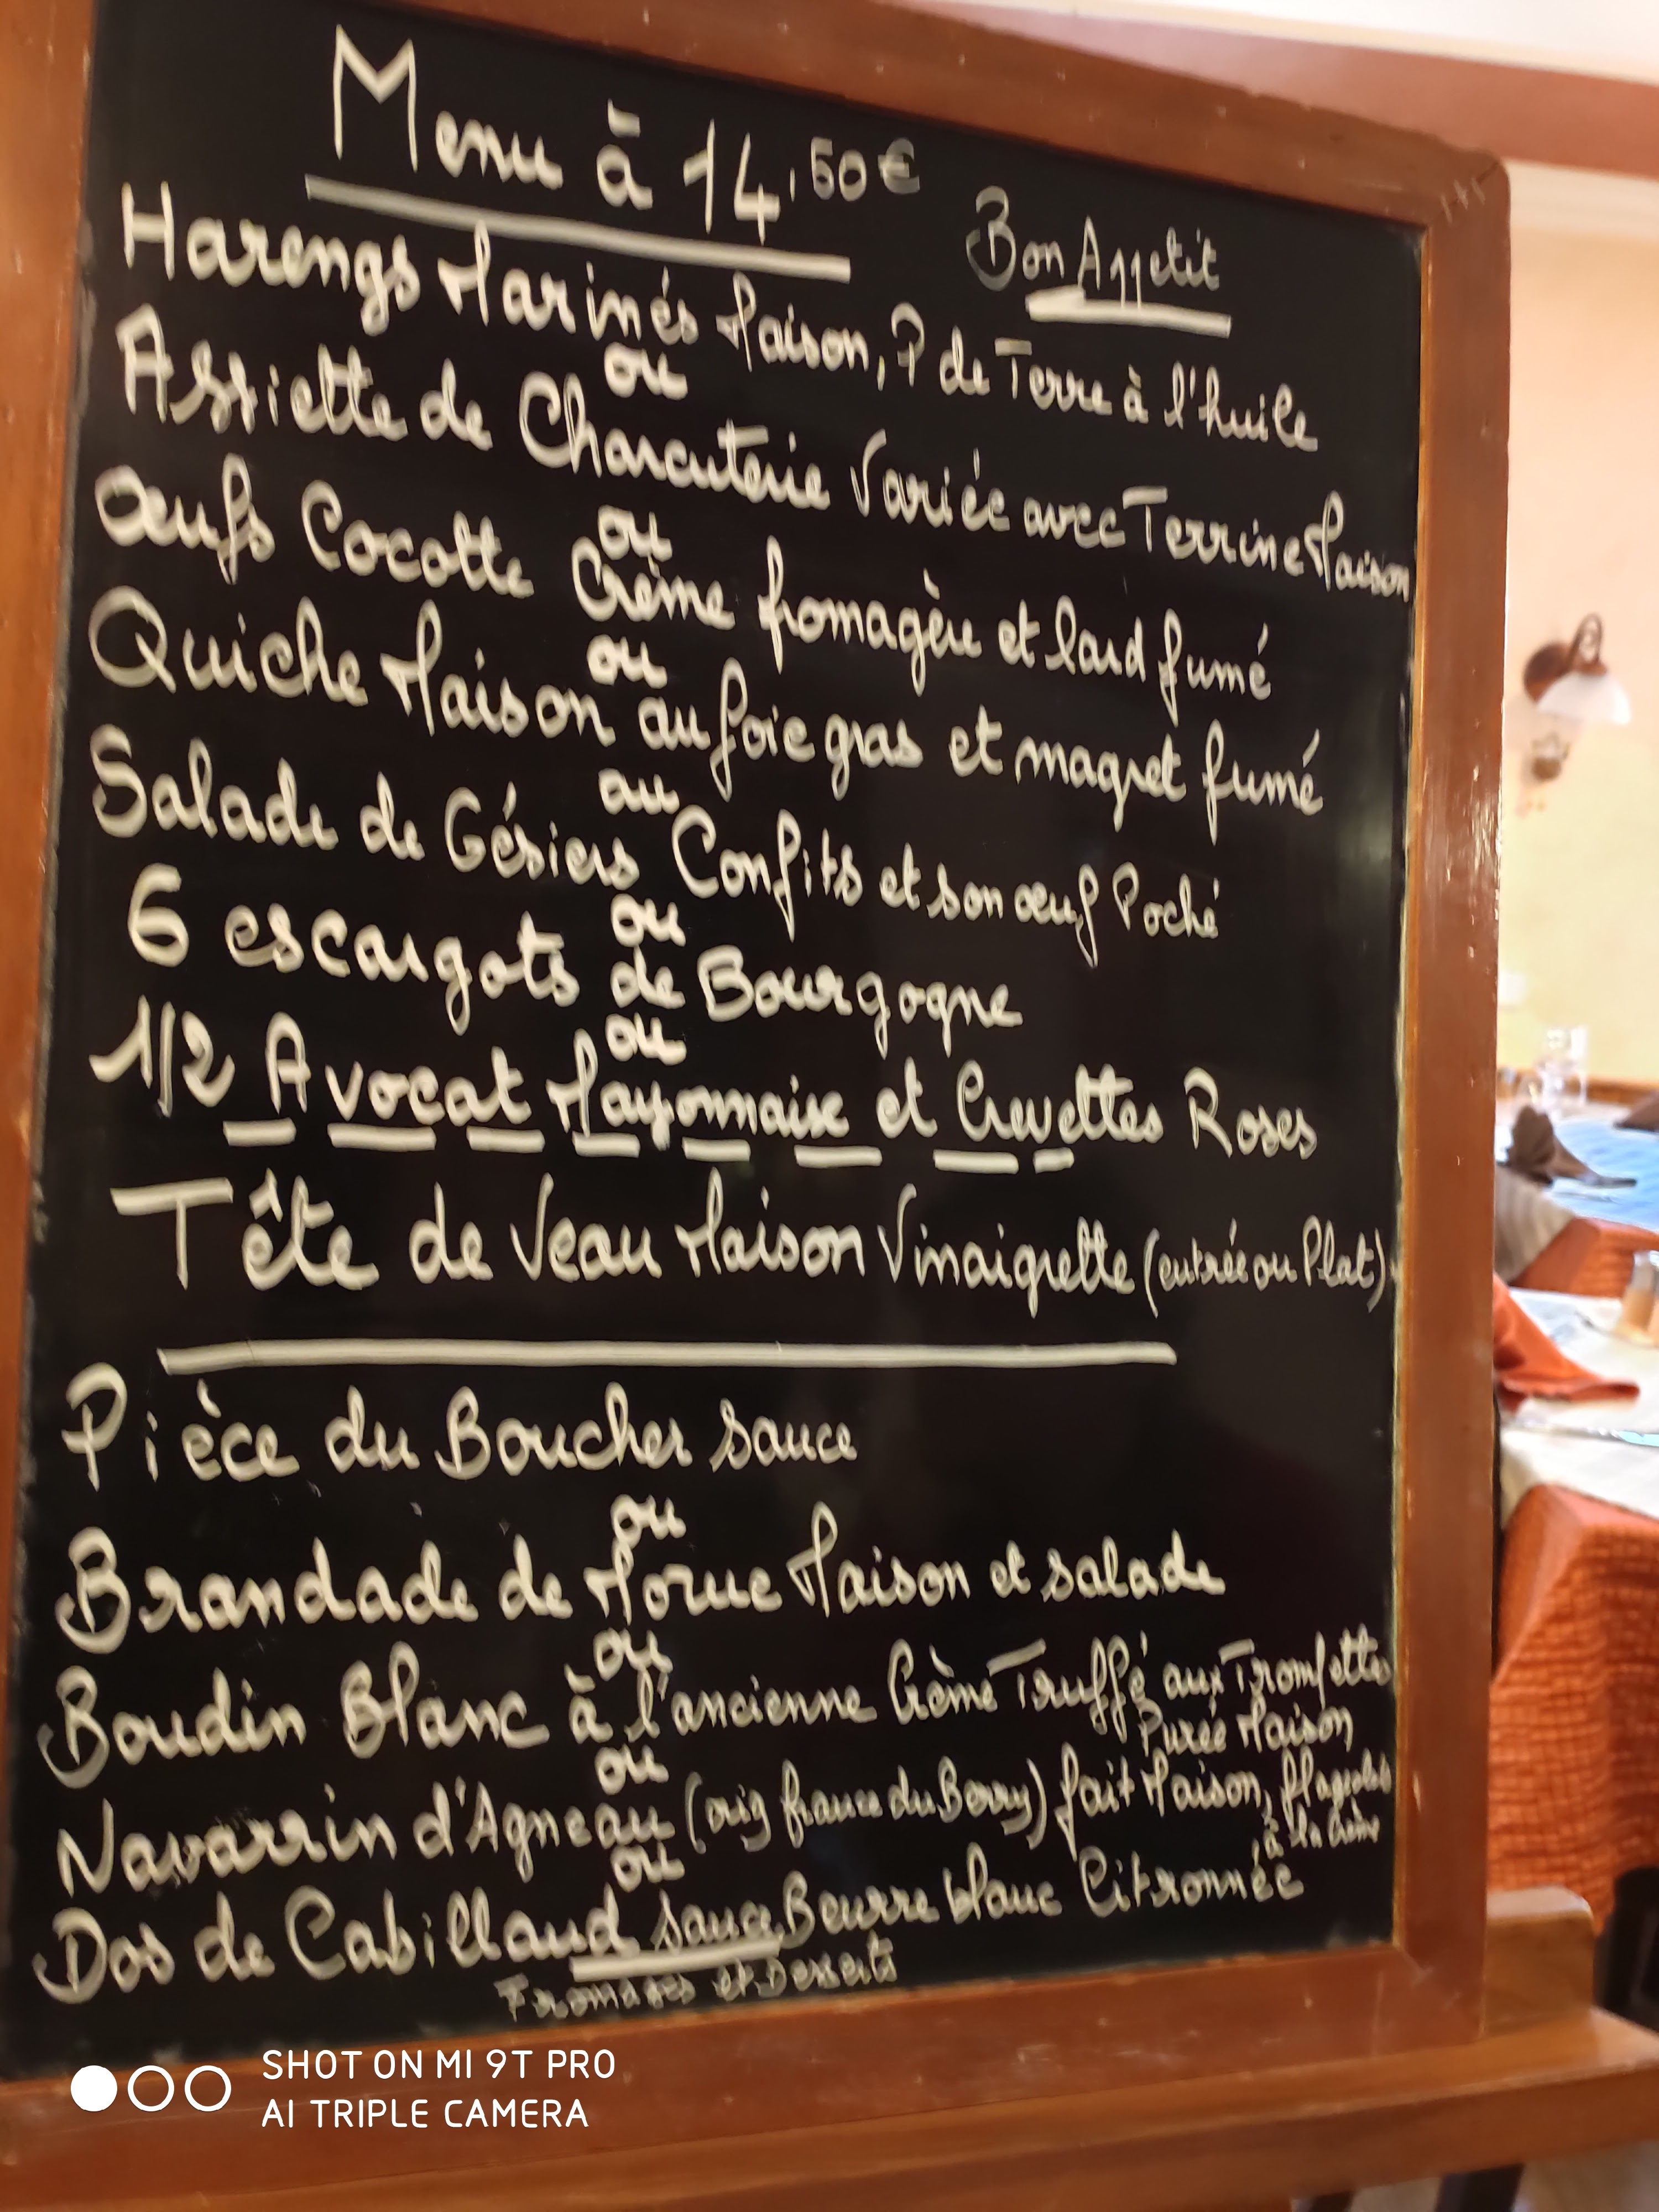 Menu à 14,50€
Bon Appetit
Harengs Marinés Maison, P de Terre à l'huile
ou
Assiette de Charcuterie Variée avec Terrine Maison
ou
œufs Cocotte Crème fromagère et lard fumé
ou
Quiche Maison au foie gras et magret fumé
au
Salade de Gésiers Confits et son œuf Poché
ou
6 escargots de Bourgogne
ou
1/2 Avocat Mayonnaise et Crevettes Roses
Tête de Veau Maison Vinaigrette (entrée ou Plat)
Pièce du Boucher sauce
ou
Brandade de Morue Maison et salade
ou
Boudin Blanc à l'ancienne Crème Truffé aux Trompettes
Purée Maison
ou
Navarrin d'Agneau (orig france du Berry) fait Maison, flageolets
à la Crème
ou
Dos de Cabillaud sauce Beurre blanc Citronnée
Fromages et Desserts
SHOT ON MI 9T PRO
AI TRIPLE CAMERA